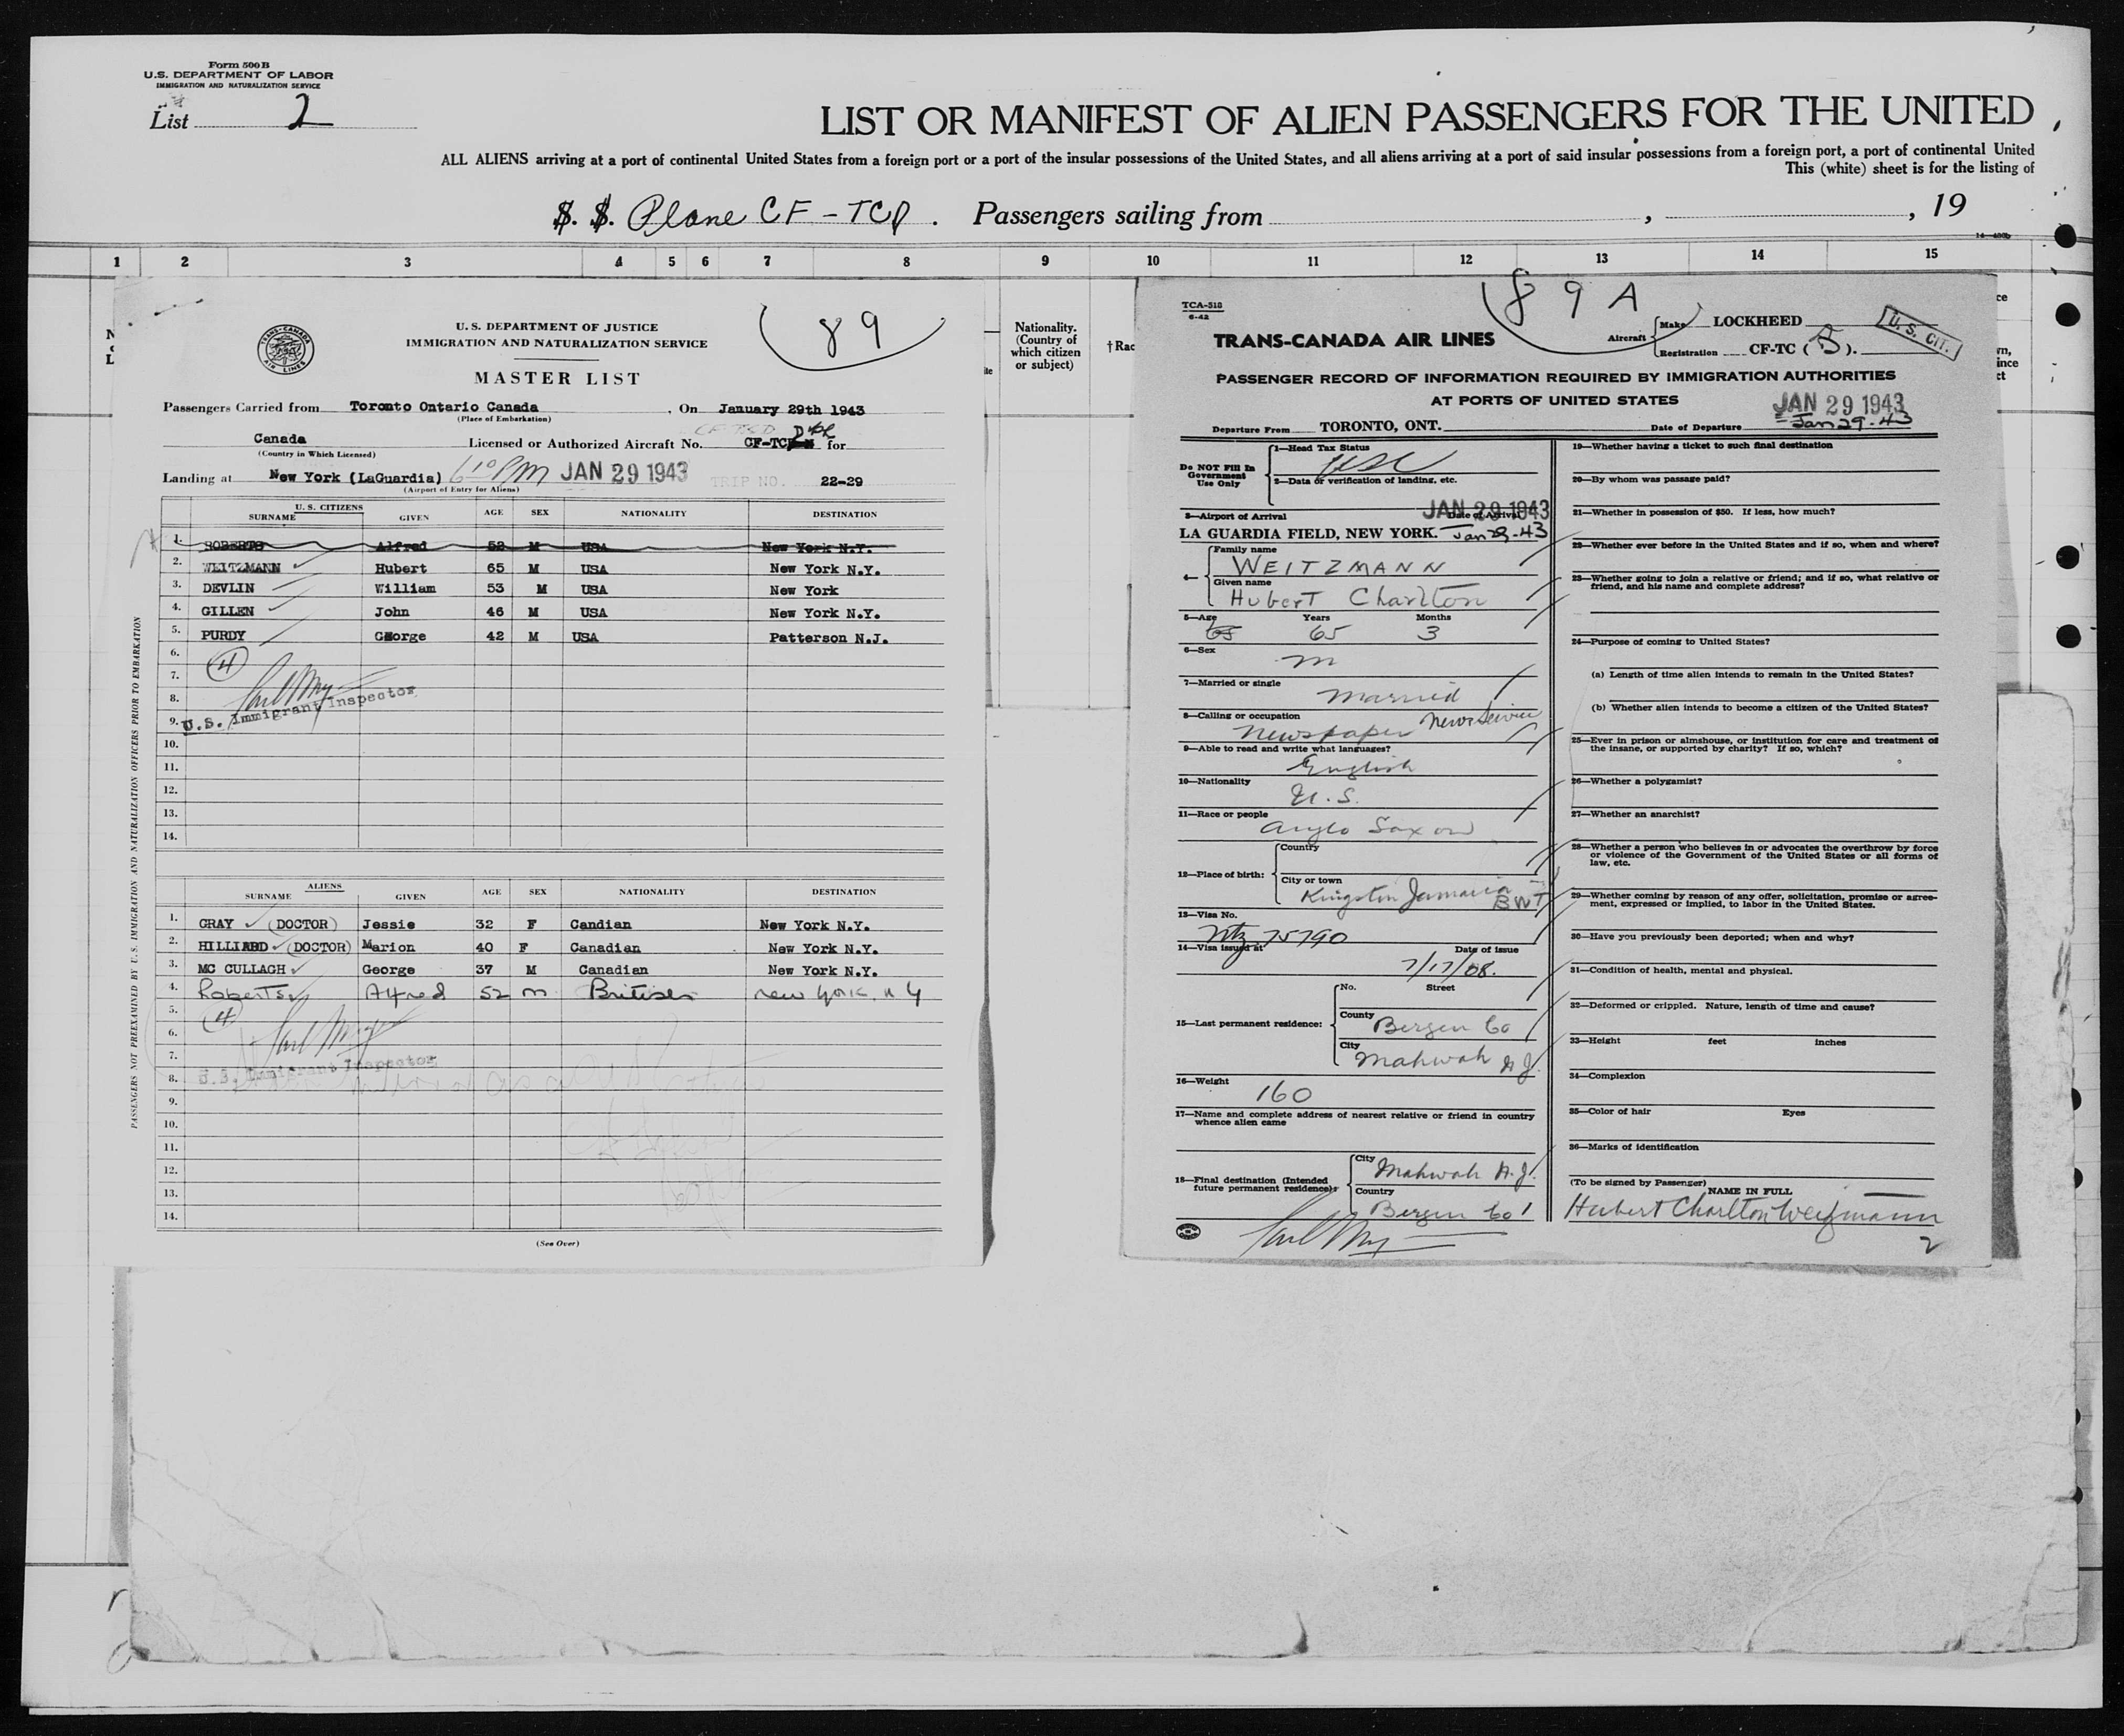 Form 500 B
U.S. DEPARTMENT OF LABOR
IMMIGRATION AND NATURALIZATION SERVICE
List 2
LIST OR MANIFEST OF ALIEN PASSENGERS FOR THE UNITED
ALL ALIENS arriving at a port of continental United States from a foreign port or a port of the insular possessions of the United States, and all aliens arriving at a port of said insular possessions from a foreign port, a port of continental United
This (white) sheet is for the listing of
S. S. Plane CF-TCD. Passengers sailing from , , 19
1 2 3 4 5 6 7 8 9 10 11 12 13 14 15
Nationality.
(Country of
which citizen
or subject)
† Rac
89
TRANS-CANADA AIR LINES
U. S. DEPARTMENT OF JUSTICE
IMMIGRATION AND NATURALIZATION SERVICE
MASTER LIST
Passengers Carried from Toronto Ontario Canada, On January 29th 1943
(Place of Embarkation)
Canada Licensed or Authorized Aircraft No. CF-TC for
(Country in Which Licensed)
Landing at New York (LaGuardia) 6 10 PM JAN 29 1943 TRIP NO. 22-29
(Airport of Entry for Aliens)
U. S. CITIZENS
SURNAME GIVEN AGE SEX NATIONALITY DESTINATION
1. ROBERTS Alfred 52 M USA New York N.Y.
2. WEITZMANN Hubert 65 M USA New York N.Y.
3. DEVLIN William 53 M USA New York
4. GILLEN John 46 M USA New York N.Y.
5. PURDY George 42 M USA Patterson N.J.
6. 4
7.
8.
9. U.S. Immigrant Inspector
10.
11.
12.
13.
14.
ALIENS
SURNAME GIVEN AGE SEX NATIONALITY DESTINATION
1. GRAY (DOCTOR) Jessie 32 F Candian New York N.Y.
2. HILLIARD (DOCTOR) Marion 40 F Canadian New York N.Y.
3. MC CULLAGH George 37 M Canadian New York N.Y.
4. Roberts Alfred 52 m British new York. N Y
5. (4)
6.
7.
8. U.S. Immigrant Inspector
9.
10.
11.
12.
13.
14.
(See Over)
PASSENGERS NOT PREEXAMINED BY U. S. IMMIGRATION AND NATURALIZATION OFFICERS PRIOR TO EMBARKATION
TCA-518
6-42
89 A
TRANS-CANADA AIR LINES
Aircraft Make LOCKHEED
Registration CF-TC (D).
U. S. CIT.
PASSENGER RECORD OF INFORMATION REQUIRED BY IMMIGRATION AUTHORITIES
AT PORTS OF UNITED STATES
JAN 29 1943
Departure From TORONTO, ONT. Date of Departure Jan 29-43
Do NOT Fill In
Government
Use Only
1—Head Tax Status
USC
2—Data or verification of landing, etc.
JAN 29 1943
3—Airport of Arrival Date of Arrival
LA GUARDIA FIELD, NEW YORK. Jan 29-43
4— Family name
WEITZMANN
Given name
Hubert Charlton
5—Age Years Months
65 65 3
6—Sex
m
7—Married or single
married
8—Calling or occupation
newspaper News Service
9—Able to read and write what languages?
English
10—Nationality
U. S.
11—Race or people
Anglo Saxon
12—Place of birth: Country
City or town
Kingston Jamaica BWI
13—Visa No.
Ntz 75790
14—Visa issued at Date of issue
7/17/08.
15—Last permanent residence: No. Street
County
Bergen Co
City
Mahwah N J.
16—Weight
160
17—Name and complete address of nearest relative or friend in country
whence alien came
18—Final destination (Intended
future permanent residence):
City Mahwah N. J.
Country
Bergen Co
19—Whether having a ticket to such final destination
20—By whom was passage paid?
21—Whether in possession of $50. If less, how much?
22—Whether ever before in the United States and if so, when and where?
23—Whether going to join a relative or friend; and if so, what relative or
friend, and his name and complete address?
24—Purpose of coming to United States?
(a) Length of time alien intends to remain in the United States?
(b) Whether alien intends to become a citizen of the United States?
25—Ever in prison or almshouse, or institution for care and treatment of
the insane, or supported by charity? If so, which?
26—Whether a polygamist?
27—Whether an anarchist?
28—Whether a person who believes in or advocates the overthrow by force
or violence of the Government of the United States or all forms of
law, etc.
29—Whether coming by reason of any offer, solicitation, promise or agree-
ment, expressed or implied, to labor in the United States.
30—Have you previously been deported; when and why?
31—Condition of health, mental and physical.
32—Deformed or crippled. Nature, length of time and cause?
33—Height feet inches
34—Complexion
35—Color of hair Eyes
36—Marks of identification
(To be signed by Passenger)
NAME IN FULL
Hubert Charlton Weitzmann
2